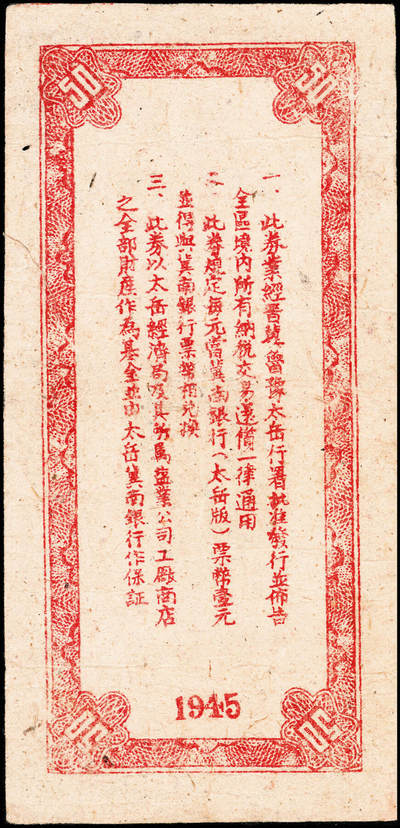 50
50
一、此券業經晉冀魯豫太岳行署批准發行並佈告
全區境內所有納稅交易還債一律通用
二、此券規定每元當冀南銀行(太岳版)票幣壹元
並得與冀南銀行票幣相兌換
三、此券以太岳經濟局及其所屬益業公司工廠商店
之全部財產作為基金並由太岳冀南銀行作保証
1945
50
50